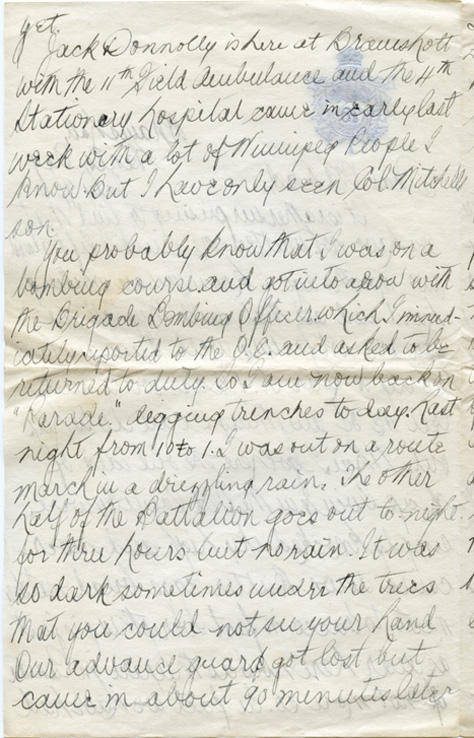 yet.
Jack Donnolly is here at Bramshott
with the 11th Field Ambulance and the 4th
Stationery hospital came in early last
week with a lot of Winnipeg People I
know but I have only seen Col. Mitchells
son.
You probably know that I was on a
bombing course. and got into a row with
the Brigade Bombing Officer. which I immed-
iately reported to the O.C. and asked to be
returned to duty. So I am now back on
"Parade." digging trenches to day. Last
night from 10 to 1. I was out on a route
march in a drizzling rain. The other
half of the Battalion goes out to-night
for three hours but no rain. It was
so dark sometimes under the trees
that you could not see your hand
Our advance guard got lost but
came in about 90 minutes later